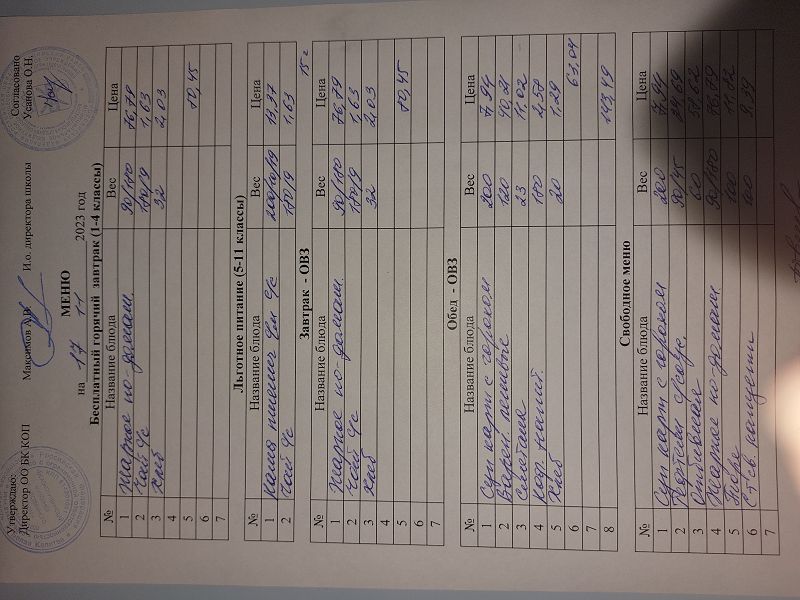 Утверждаю: Согласовано
Директор ОО БК КОП Максимов А.В. И.о. директора школы Усанова О.Н.
МЕНЮ
на 17 11 2023 год
Бесплатный горячий завтрак (1-4 классы)
№ Название блюда Вес Цена
1 Жаркое по-домаш. 90/180 76,79
2 Чай с/с 180/9 1,63
3 Хлеб 32 2,03
4
5 80,45
6
7
Льготное питание (5-11 классы)
№ Название блюда Вес Цена
1 каша с/с 13,37
2 Чай с/с 180/9 1,63
Завтрак - ОВЗ 15 =
№ Название блюда Вес Цена
1 Жаркое по-домаш. 90/180 76,79
2 Чай с/с 180/9 1,63
3 Хлеб 32 2,03
4
5 80,45
6
7
Обед - ОВЗ
№ Название блюда Вес Цена
1 Суп карт с горохом 200 7,94
2 120
3 Сметана 23 11,02
4 Коф. напит. 180 2,58
5 Хлеб 20 1,29
6 63,04
7
8 143,49
Свободное меню
№ Название блюда Вес Цена
1 Суп карт с горохом 200 7,94
2 Тефтели с/соус 90/45
3 Отбивная 60
4 Жаркое по-домаш 90/180 76,79
5 Пюре 100
6 100
7